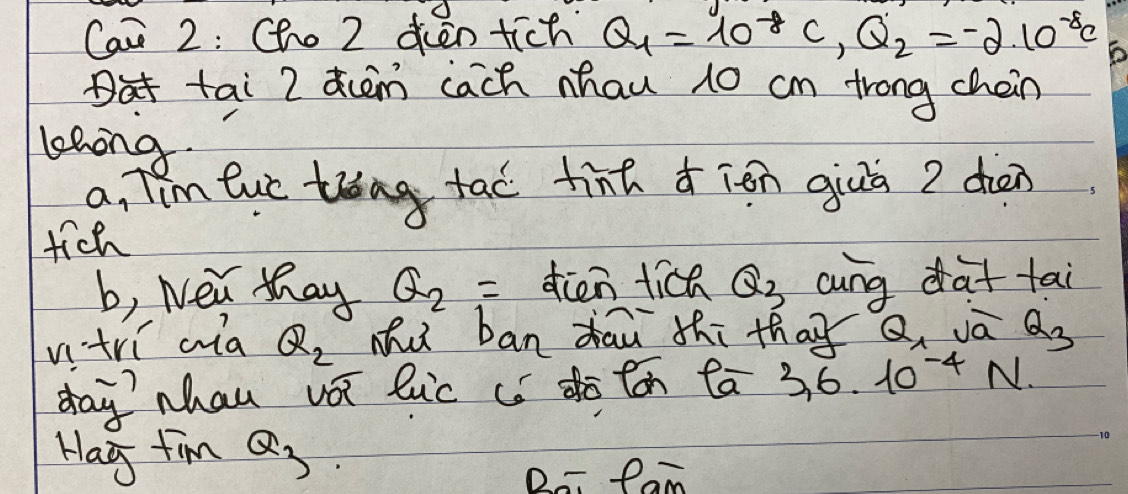 Câu 2: Cho 2 điện tích Q₁ = 10⁻⁸ C, Q₂ = -2.10⁻⁸C
Đặt tại 2 điểm cách nhau 10 cm trong chân
không.
a, Tìm lực tương tác tĩnh điện giữa 2 điện
tích
b, Nếu thay Q₂ = điện tích Q₃ cũng đặt tại
vị trí của Q₂ như ban đầu thì thấy Q₁ và Q₃
đẩy nhau với lực có độ lớn là 3,6.10⁻⁴ N.
Hãy tìm Q₃.
Bài làm